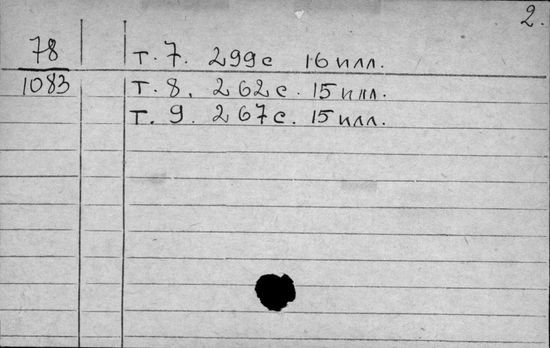 2.
78
1083
т. 7. 299с 16 илл.
т. 8. 262с. 15 илл.
т. 9. 267с. 15 илл.